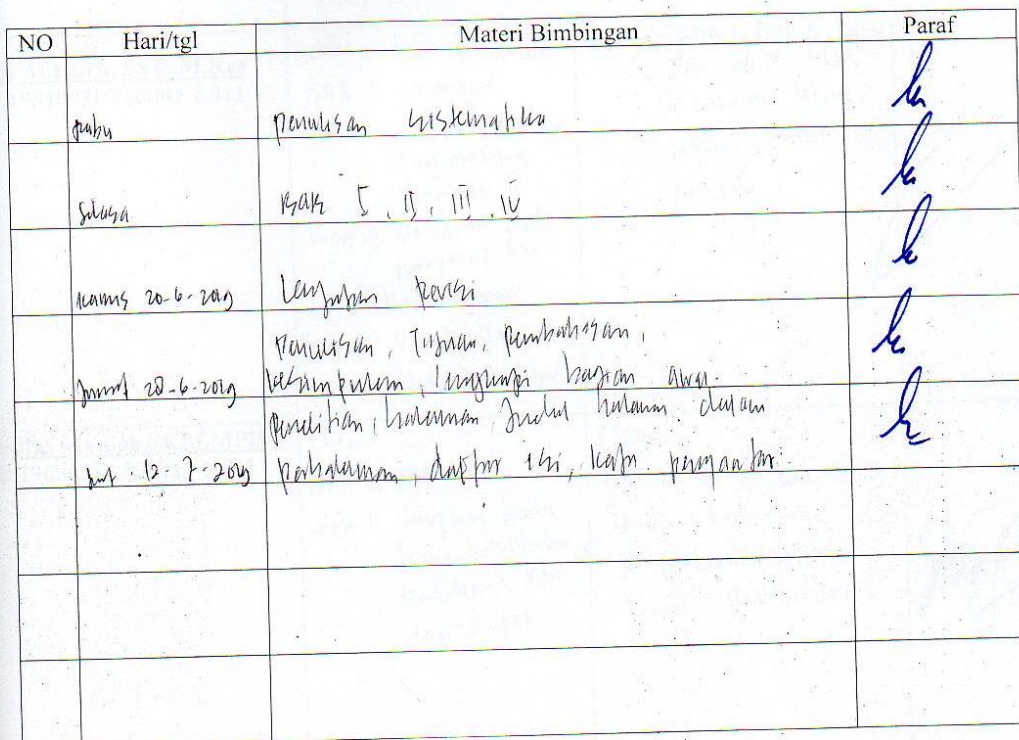 NO Hari/tgl Materi Bimbingan Paraf
Rabu penulisan sistematika
Selasa BAB I, II, III, IV
Kamis 20-6-2019 Lanjutan Revisi
Penulisan, Tujuan, Pembahasan,
Jumat 28-6-2019 kesimpulan, lengkapi bagian awal.
Penelitian, halaman, Judul halaman dalam
12-7-2019 daftar isi, kata pengantar.